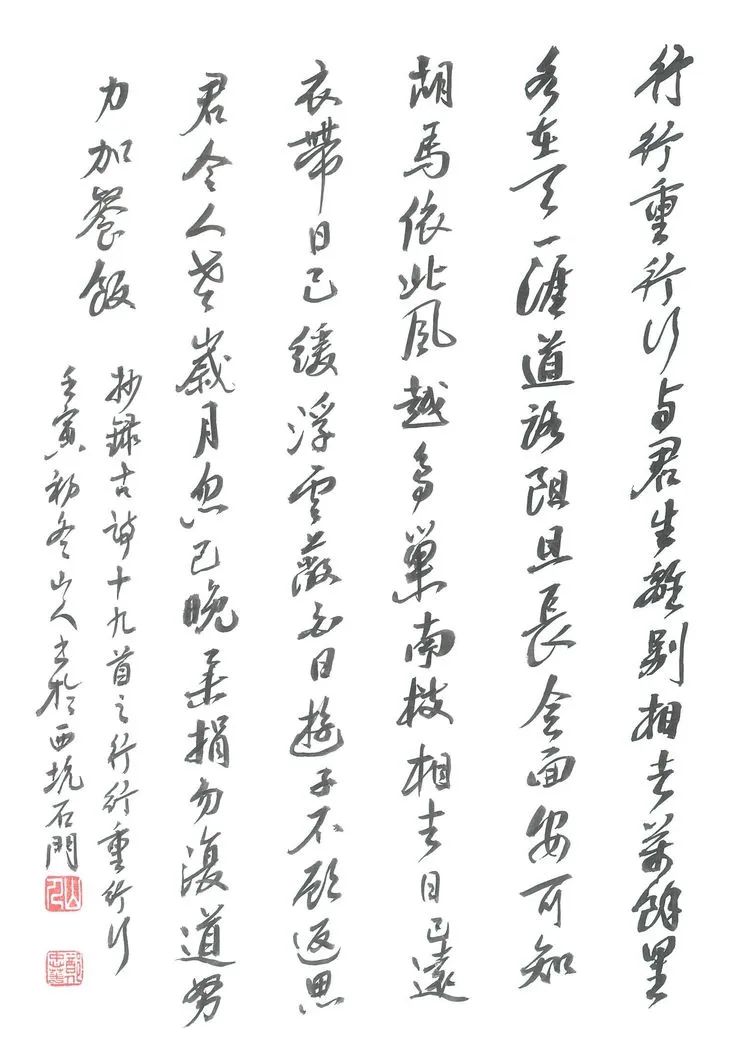 行行重行行与君生離別相去萬餘里
各在天一涯道路阻且長會面安可知
胡馬依北風越鳥巢南枝相去日已遠
衣帶日已緩浮雲蔽白日遊子不顧返思
君令人老歲月忽已晚棄捐勿復道努
力加餐飯
抄錄古詩十九首之行行重行行
壬寅初冬山人书於西坑石門
山人